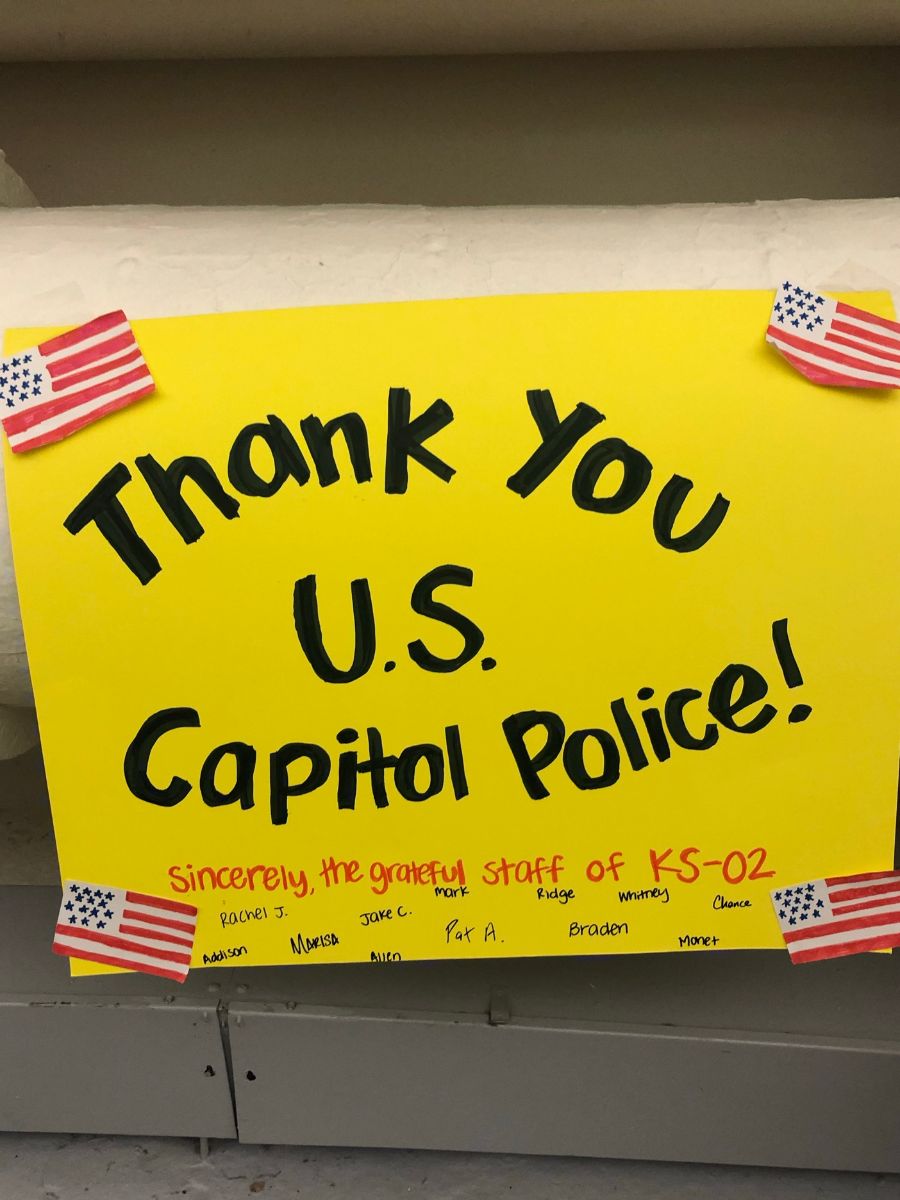 Thank You
U.S.
Capitol Police!
Sincerely, the grateful staff of KS-02
Mark Ridge Whitney Chance
Rachel J. Jake C.
Addison MARISA Allen Pat A. Braden Monet